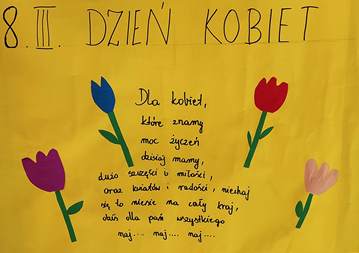 8.III. DZIEŃ KOBIET
Dla kobiet,
które znamy
moc życzeń
dzisiaj mamy,
dużo szczęści i miłości,
oraz kwiatów i radości, niechaj
się to niesie na cały kraj,
dziś dla pań wszystkiego
naj.... naj.... naj....